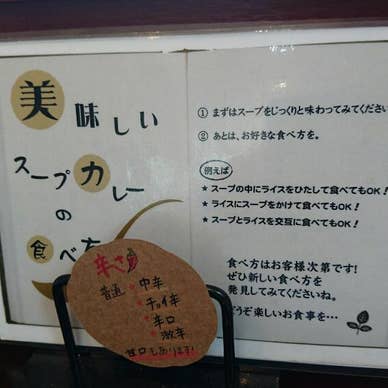 美味しい
スープカレー
の
食べ方
① まずはスープをじっくりと味わってみてくださ
② あとは、お好きな食べ方を。
例えば
★ スープの中にライスをひたして食べてもOK！
★ ライスにスープをかけて食べてもOK！
★ スープとライスを交互に食べてもOK！
食べ方はお客様次第です！
ぜひ新しい食べ方を
発見してみてくださいね。
どうぞ楽しいお食事を…
辛さ
普通・中辛
・チョイ辛
・辛口
・激辛
甘口もあります！